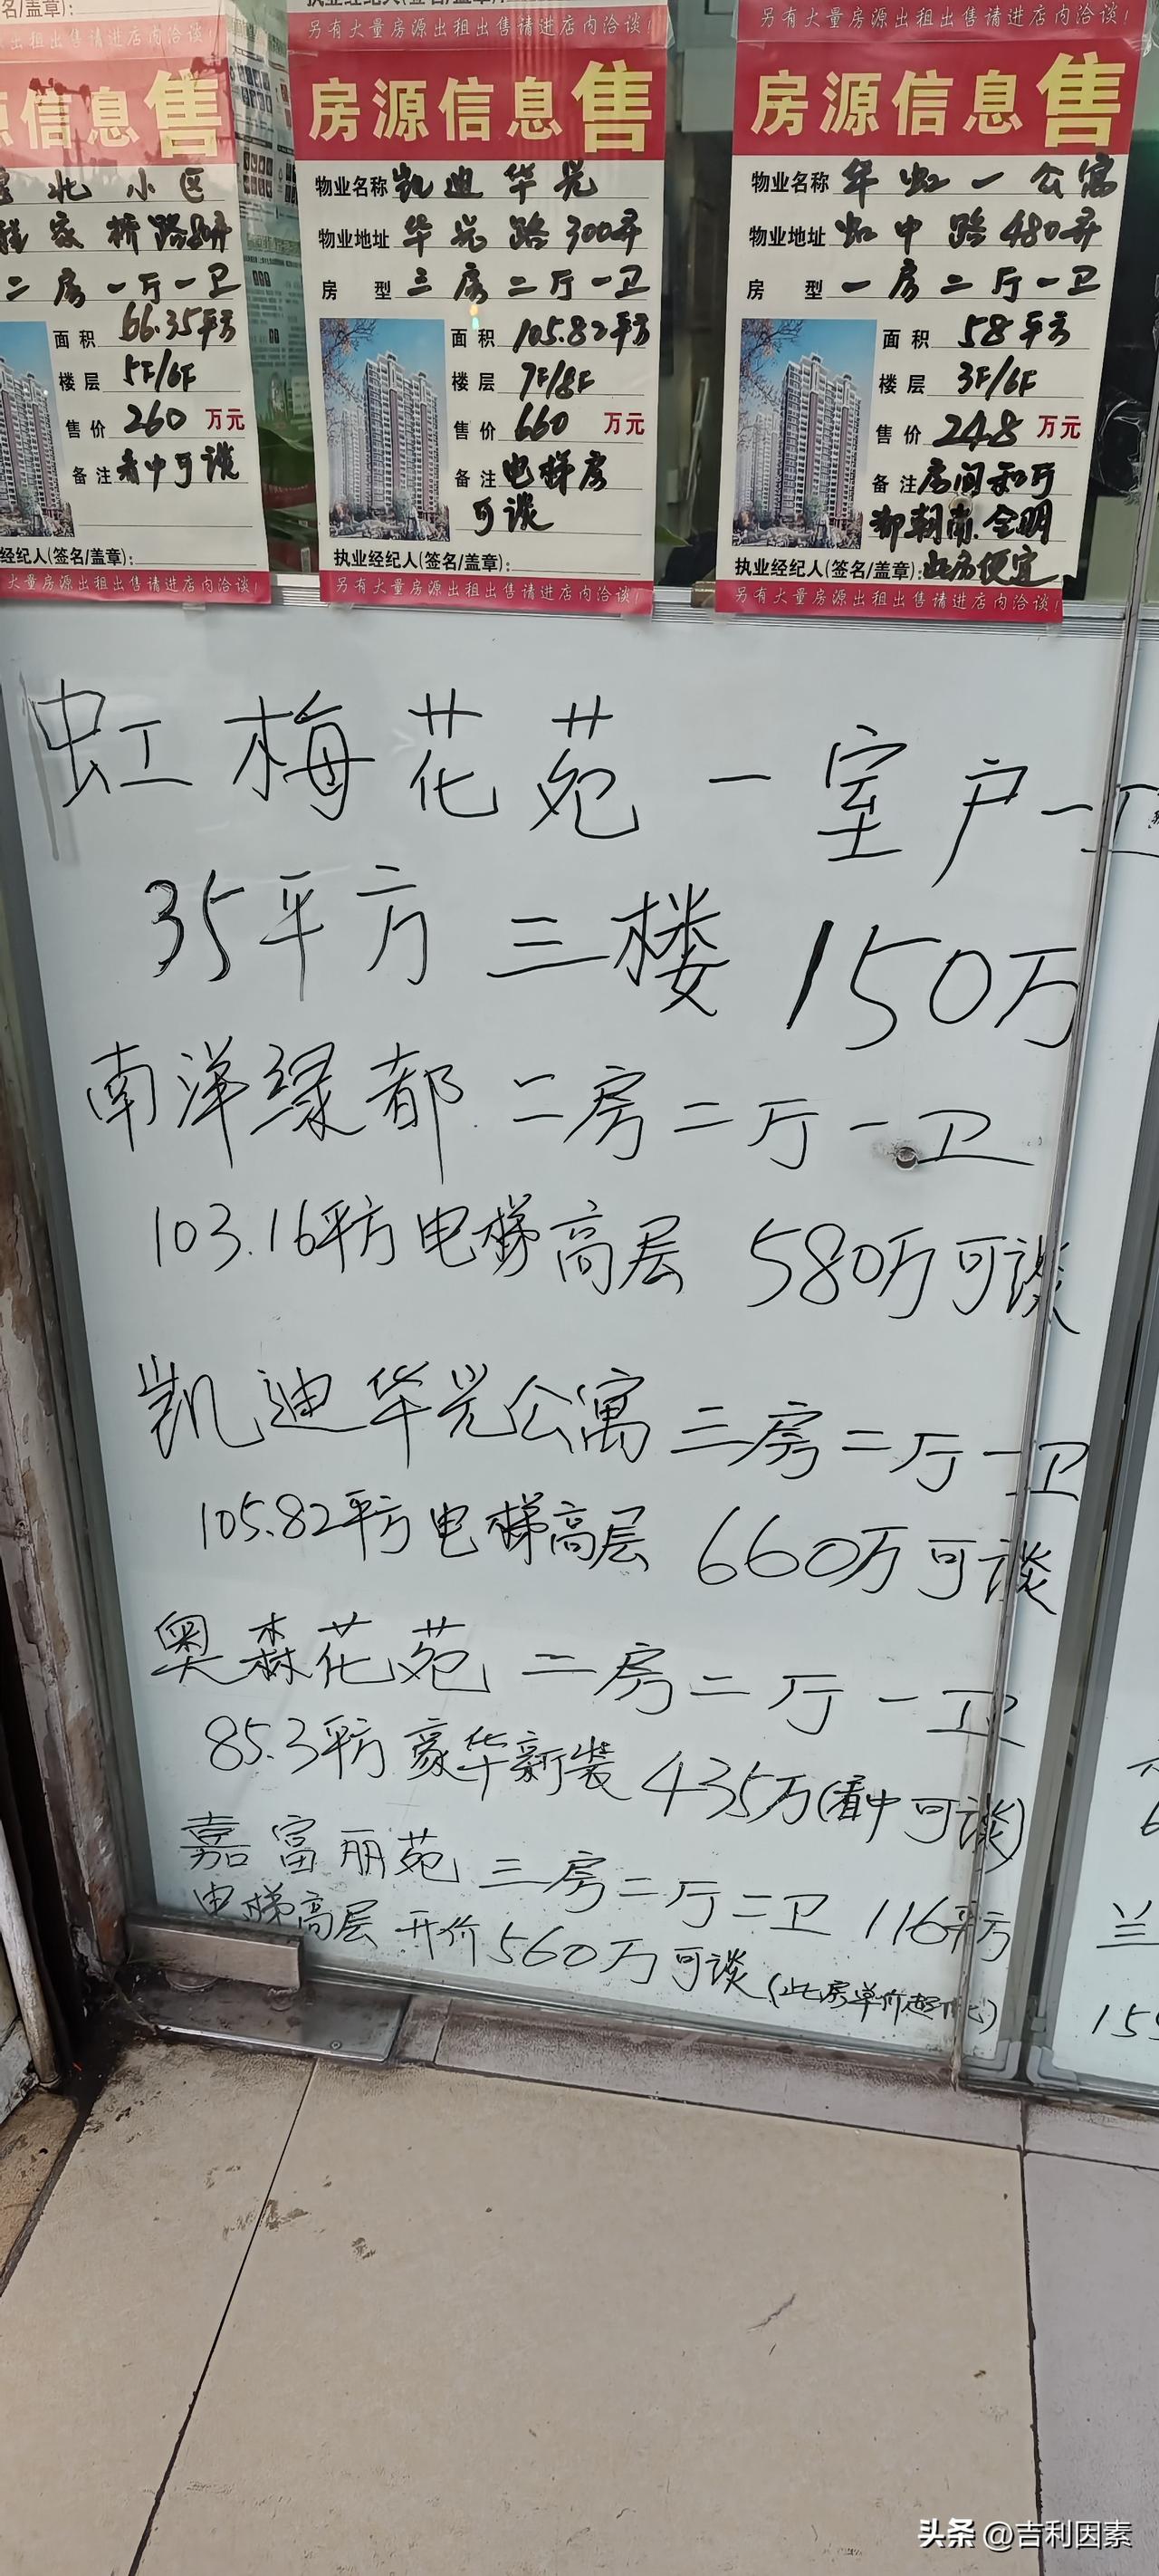 名/盖章):
执业经纪人(签名/盖章):
另有大量房源出租出售请进店内洽谈!
另有大量房源出租出售请进店内洽谈!
信息售
北小区
家桥路
二房一厅一卫
面积 66.35平方
楼层 5F/6F
售价 260 万元
备注 看中可谈
经纪人(签名/盖章):
大量房源出租出售请进店内洽谈!
房源信息售
物业名称 凯迪华光
物业地址 华光路300弄
房型 三房二厅一卫
面积 105.82平方
楼层 7F/8F
售价 660 万元
备注 电梯房
可谈
执业经纪人(签名/盖章):
另有大量房源出租出售请进店内洽谈!
房源信息售
物业名称 华虹一公寓
物业地址 虹中路480弄
房型 一房二厅一卫
面积 58平方
楼层 3F/6F
售价 248 万元
备注 房间和厅
都朝南.全明
执业经纪人(签名/盖章): 此房便宜
另有大量房源出租出售请进店内洽谈!
虹梅花苑一室户一卫
35平方 三楼 150万
南洋绿都 二房二厅一卫
103.16平方电梯高层 580万可谈
凯迪华光公寓 三房二厅一卫
105.82平方电梯高层 660万可谈
奥森花苑 二房二厅一卫
85.3平方豪华新装 435万(看中可谈)
嘉富丽苑 三房二厅二卫 116平方
电梯高层 开价560万可谈(此房单价超低)
兰
155
头条 @吉利因素